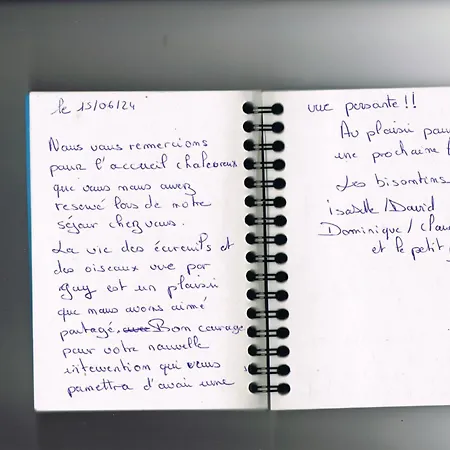 le 15/06/24
Nous vous remercions
pour l'accueil chaleureux
que vous nous avez
reservé lors de notre
séjour chez vous.
La vie des écureuils et
des oiseaux vue par
Guy est un plaisir
que nous avons aimé
partagé. avec Bon courage
pour votre nouvelle
intervention qui vous
permettra d'avoir une
vue persante!!
Au plaisir pour
une prochaine
Les bisontins
isabelle/David
Dominique/
et le petit